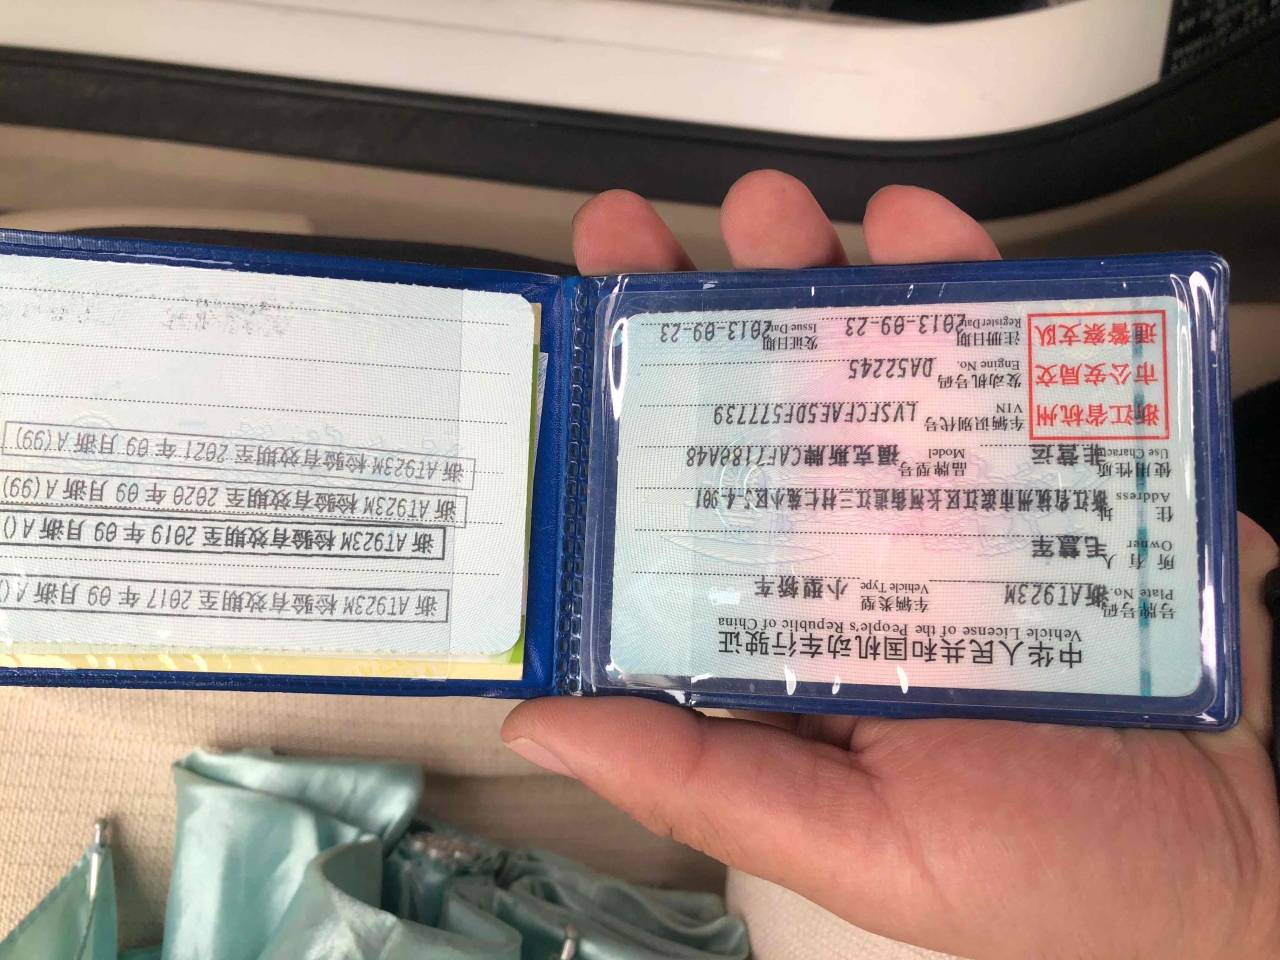 中华人民共和国机动车行驶证
Vehicle License of the People's Republic of China
号牌号码 浙AT923M 车辆类型 小型轿车
Plate No. Vehicle Type
所有人 毛慧军
Owner
住址 浙江省杭州市滨江区长河街道江三村仁苑小区3-4-301
Address
使用性质 非营运 品牌型号 福克斯牌CAF7180A48
Use Character Model
浙江省杭州
市公安局交
通警察支队
车辆识别代号 LVSFCFAE5DF577739
VIN
发动机号码 DA52245
Engine No.
注册日期 2013-09-23 发证日期 2013-09-23
Register Date Issue Date
浙AT923M 检验有效期至 2017 年 09 月浙 A (
浙AT923M 检验有效期至 2019 年 09 月浙 A ()
浙AT923M 检验有效期至 2020 年 09 月浙 A (99)
浙AT923M 检验有效期至 2021 年 09 月浙 A (99)